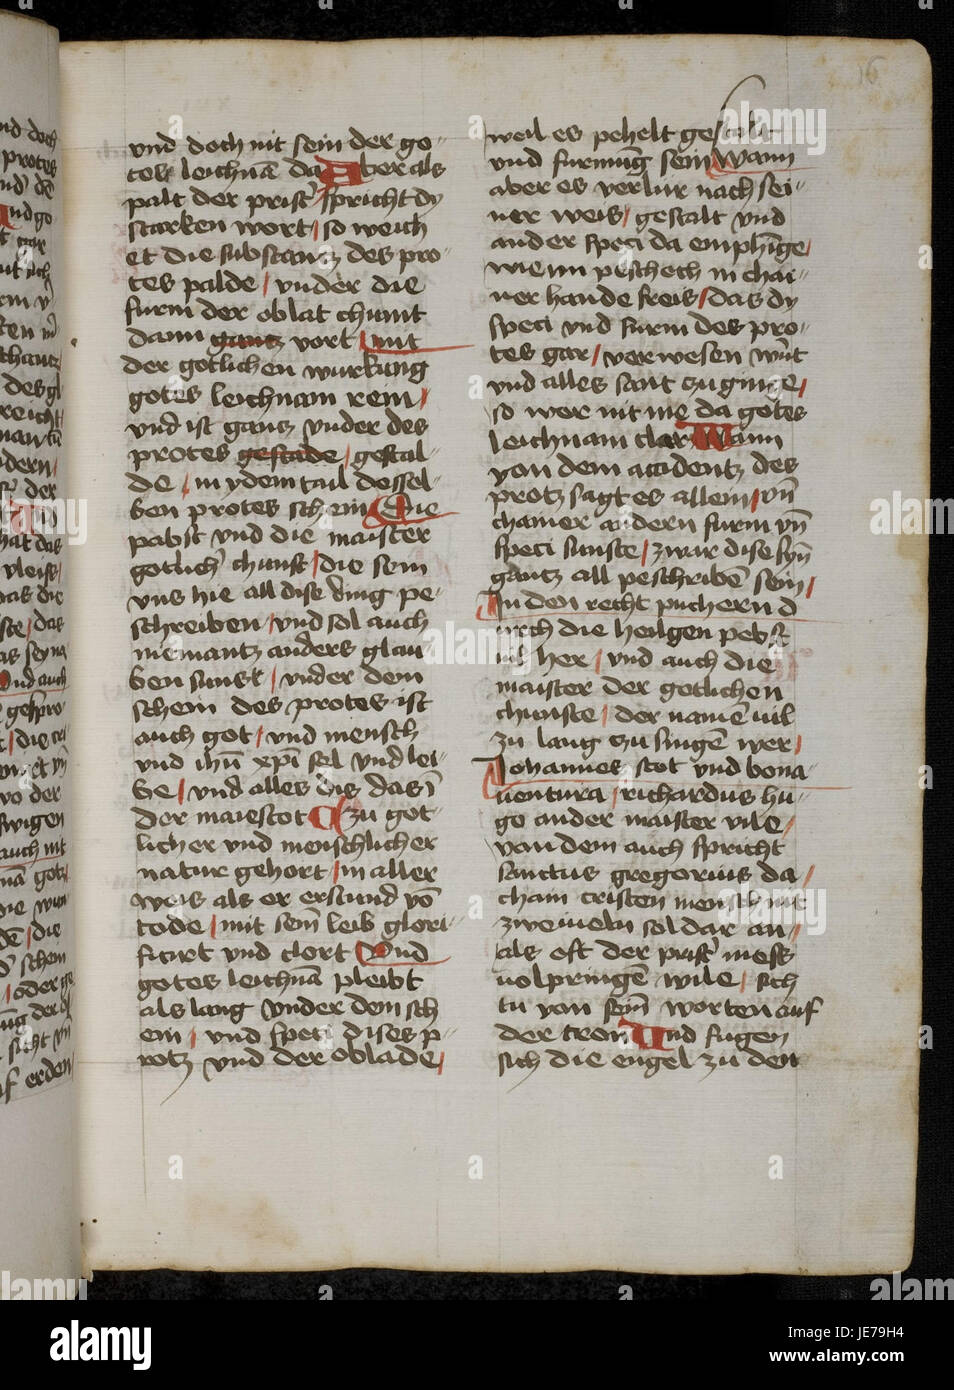 16
und doch nit sein der go-
tes leichnā da Aber als
palt der prist' spricht dy
starken wort so weich
et die substantz des pro-
tes palde under die
furm der oblat chumt
dann gantz vort mit
der gotlichen wurkung
gotes leichnam rein
und ist gantz under des
protes gestade gestal-
de in ydem tail dessel-
ben protes schein Die
pabst und die maister
gotlich' chunst die sein
uns hie all dise ding pe-
schreiben und sol auch
niemantz anders glau-
ben sunst under dem
schein des protes ist
auch got und mensch
und ihū xpī sel und lei-
be und alles dis das ī
der maiestot zu got-
licher und menschlicher
natur gehort in aller
weis als er erstund vō
tode mit sem̄ leib glori-
ficirt und clort Und
gotes leichnā pleibt
als lang under dem sch
ein und speci dises p-
rotz und der oblade
weil es pehelt gestalt
und furmūg sein Wann
aber es verlur nach sei-
ner weis gestalt und
ander speci da emphīge
wie im peschech in chai-
ner hande freis das dy
speci und furm des pro-
tes gar verwesen wūt
und alles sant zu ginge
so wer nit me da gotes
leichnam clar Wann
von dem accidentz des
protz sagt es allein vn̄
chainer andern furm vn̄
speci sunste zwar dise syn̄
gantz all peschribē sein
In den recht puchern d
urch die heilgen pebst
vil her und auch die
maister der gotlichen
chunste der namē vil
zu lang zu singē wer
Johannes scot und bona-
uentura richardus hu-
go ander maister vile
von dem auch spricht
sanctus gregorius da
chain cristen mensch nit
zweiueln sol dar an
als oft der prist' mess
volpringē wile sich
tu von sein̄ worten auf
der tron Und fugen
sich die engel zu den
alamy
a
alamy
Image ID: JE79H4
www.alamy.com